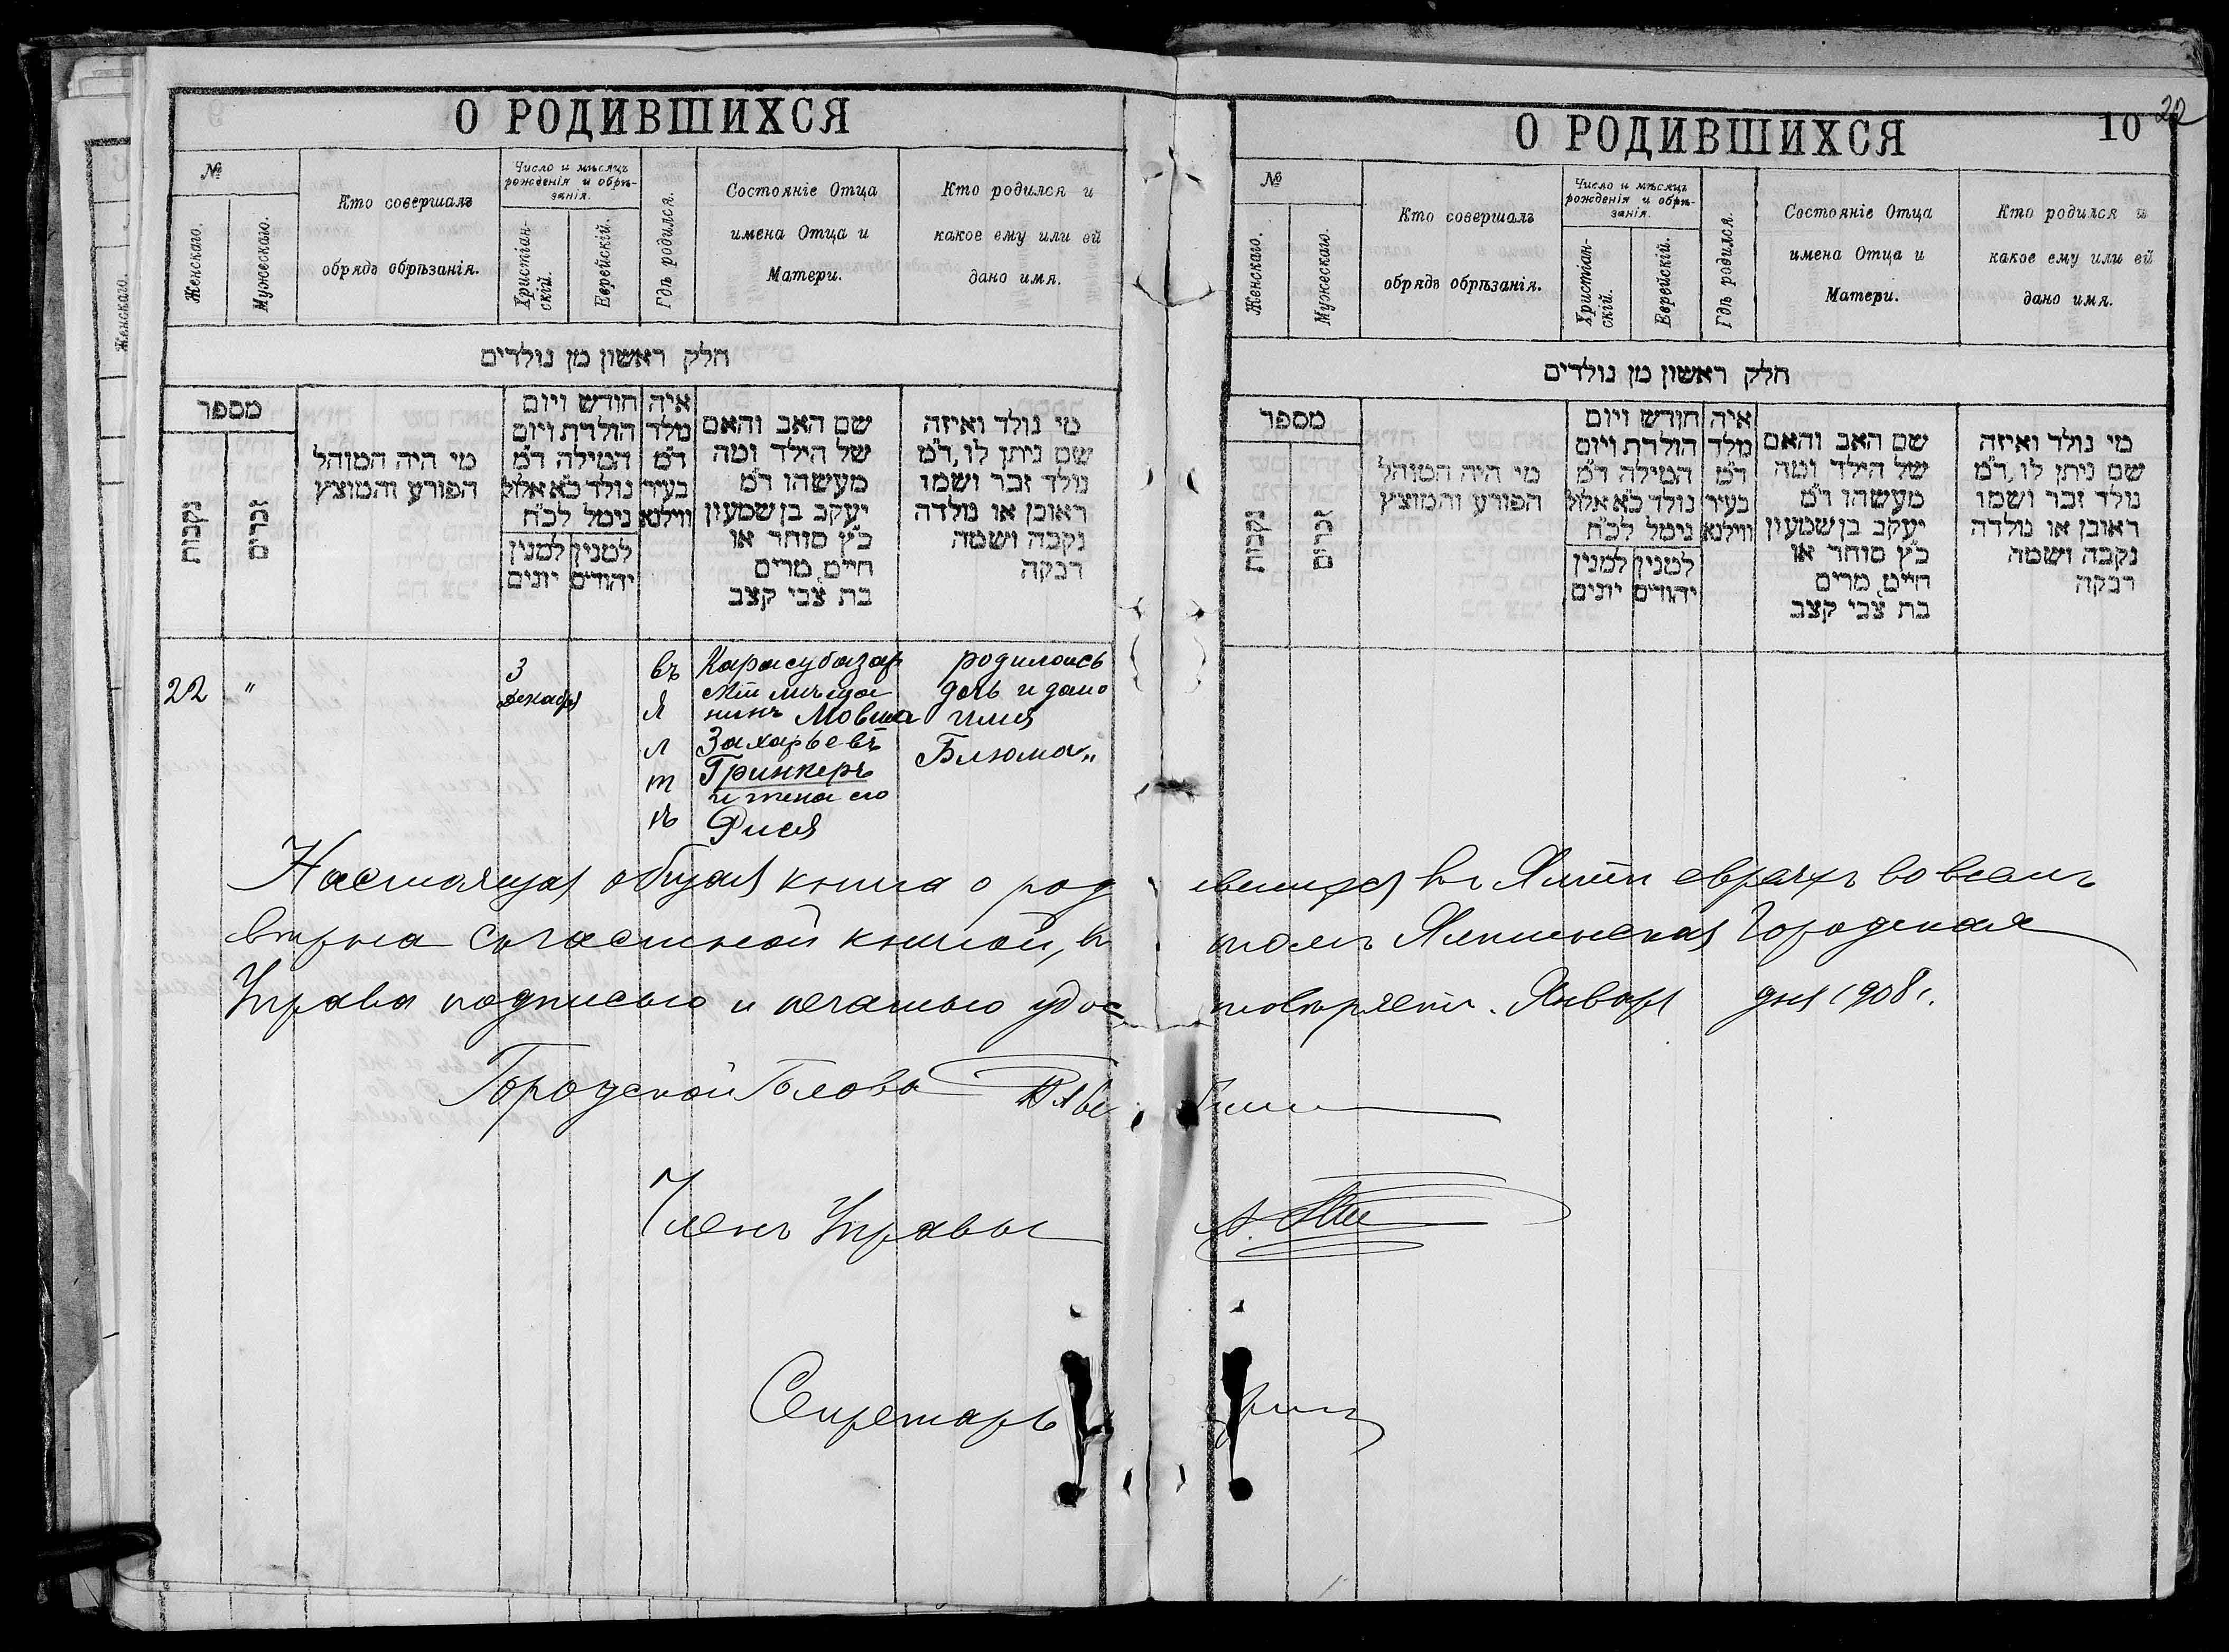 О РОДИВШИХСЯ
№
Женскаго.
Мужескаго.
Кто совершалъ
обрядъ обрѣзанія.
Число и мѣсяцъ
рожденія и обрѣ-
занія.
Христіан-
скій.
Еврейскій.
Гдѣ родился.
Состояніе Отца
имена Отца и
Матери.
Кто родился и
какое ему или ей
дано имя.
חלק ראשון מן נולדים
מספר
נקבות
זכרים
מי היה המוהל
הפורע והמוצץ
חודש ויום
הולדת ויום
המילה ד״מ
נולד כ״א אלול
נימל לכ״ח
למנין יהודים
למנין יונים
איה
מלד
ד״מ
בעיר
ווילנא
שם האב והאם
של הילד ומה
מעשהו ד״מ
יעקב בן שמעון
כ״ץ סוחר או
חיים, מרים
בת צבי קצב
מי נולד ואיזה
שם ניתן לו, ד״מ
נולד זכר ושמו
ראובן או נולדה
נקבה ושמה
רבקה
22 "
3
Декабря
въ
Я
л
т
ѣ
Карасубазар
скій мѣща
нинъ Мовша
Захарьевъ
Гринкеръ
и жена его
Фися
родилась
дочь и дано
имя
Блюма"
О РОДИВШИХСЯ
10
22
№
Женскаго.
Мужескаго.
Кто совершалъ
обрядъ обрѣзанія.
Число и мѣсяцъ
рожденія и обрѣ-
занія.
Христіан-
скій.
Еврейскій.
Гдѣ родился.
Состояніе Отца
имена Отца и
Матери.
Кто родился и
какое ему или ей
дано имя.
חלק ראשון מן נולדים
מספר
נקבות
זכרים
מי היה המוהל
הפורע והמוצץ
חודש ויום
הולדת ויום
המילה ד״מ
נולד כ״א אלול
נימל לכ״ח
למנין יהודים
למנין יונים
איה
מלד
ד״מ
בעיר
ווילנא
שם האב והאם
של הילד ומה
מעשהו ד״מ
יעקב בן שמעון
כ״ץ סוחר או
חיים, מרים
בת צבי קצב
מי נולד ואיזה
שם ניתן לו, ד״מ
נולד זכר ושמו
ראובן או נולדה
נקבה ושמה
רבקה
Настоящая общая книга о родившихся въ Ялтѣ евреяхъ во всемъ
вѣрна съ частной книгой, въ томъ Ялтинская Городская
Управа подписью и печатью удостовѣряетъ. Января дня 1908 г.
Городской Голова
Членъ Управы
Секретарь
Женскаго.